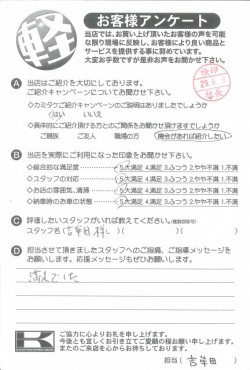 軽
お客様アンケート
当店では、お買い上げ頂いたお客様の声を可能
な限り現場に反映し、お客様により良い商品と
サービスを提供する事に努めています。
大変お手数ですが是非お声をお聞かせ下さい。
A 当店はご紹介を大切にしております。
ご紹介キャンペーンについてお聞かせ下さい。
◇カミタケご紹介キャンペーンのご説明はありましたでしょうか
はい いいえ
◇具体的にご紹介頂ける方とのご関係をお聞かせ頂けますでしょうか
ご親族 ご友人 職場の方 機会があれば紹介したい
B 当店を実際にご利用になった印象をお聞かせ下さい。
◇総合的な満足度 5.大満足 4.満足 3.ふつう 2.やや不満 1.不満
◇スタッフの対応 5.大満足 4.満足 3.ふつう 2.やや不満 1.不満
◇お店の雰囲気、清掃 5.大満足 4.満足 3.ふつう 2.やや不満 1.不満
◇納車時のお車の状態 5.大満足 4.満足 3.ふつう 2.やや不満 1.不満
C 評価したいスタッフがいれば教えてください。
スタッフ名(吉年田 様)( )( )
D 担当させて頂きましたスタッフへのご指摘、ご指導メッセージを
お願いします。応援メッセージもぜひお願いします。
満足でした
K
ご協力に心よりお礼を申し上げます。
今後とも宜しくお引き立てご愛顧の程お願い申し上げます。
またのご来店を心からお待ちしております。
担当( 吉年田 )